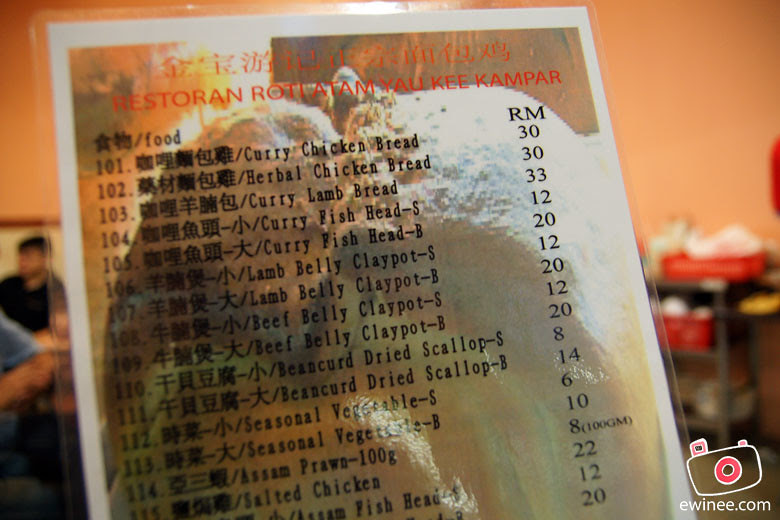 金宝游记正宗面包鸡
RESTORAN ROTI AYAM YAU KEE KAMPAR
食物/food RM
101. 咖哩麵包雞/Curry Chicken Bread 30
102. 藥材麵包雞/Herbal Chicken Bread 30
103. 咖哩羊腩包/Curry Lamb Bread 33
104. 咖哩魚頭-小/Curry Fish Head-S 12
105. 咖哩魚頭-大/Curry Fish Head-B 20
106. 羊腩煲-小/Lamb Belly Claypot-S 12
107. 羊腩煲-大/Lamb Belly Claypot-B 20
108. 牛腩煲-小/Beef Belly Claypot-S 12
109. 牛腩煲-大/Beef Belly Claypot-B 20
110. 干貝豆腐-小/Beancurd Dried Scallop-S 8
111. 干貝豆腐-大/Beancurd Dried Scallop-B 14
112. 時菜-小/Seasonal Vegetable-S 6
113. 時菜-大/Seasonal Vegetable-B 10
114. 亞三蝦/Assam Prawn-100g 8(100GM)
115. 鹽焗雞/Salted Chicken 22
/Assam Fish Head-S 12
20
ewinee.com